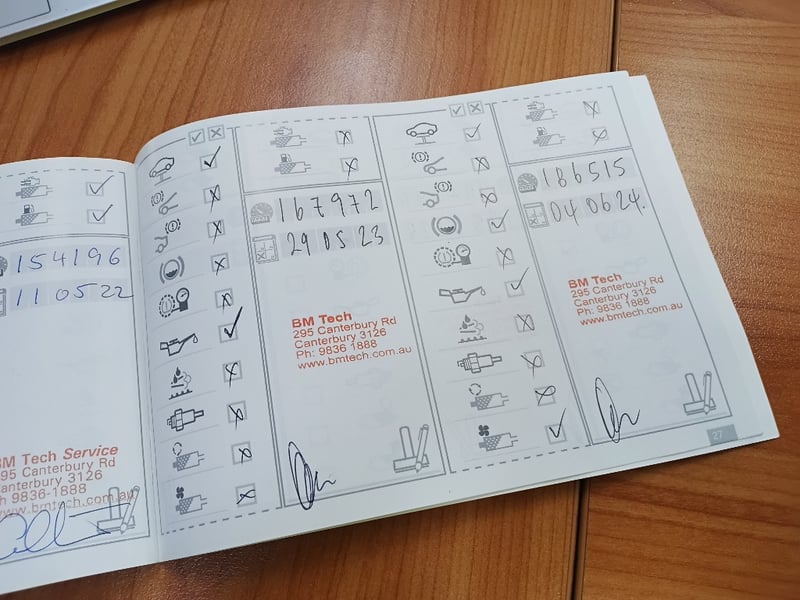 154196
11 05 22
BM Tech Service
295 Canterbury Rd
Canterbury 3126
Ph 9836-1888
www.bmtech.com.au
167972
29 05 23
BM Tech
295 Canterbury Rd
Canterbury 3126
Ph: 9836 1888
www.bmtech.com.au
186515
04 06 24.
BM Tech
295 Canterbury Rd
Canterbury 3126
Ph: 9836 1888
www.bmtech.com.au
27